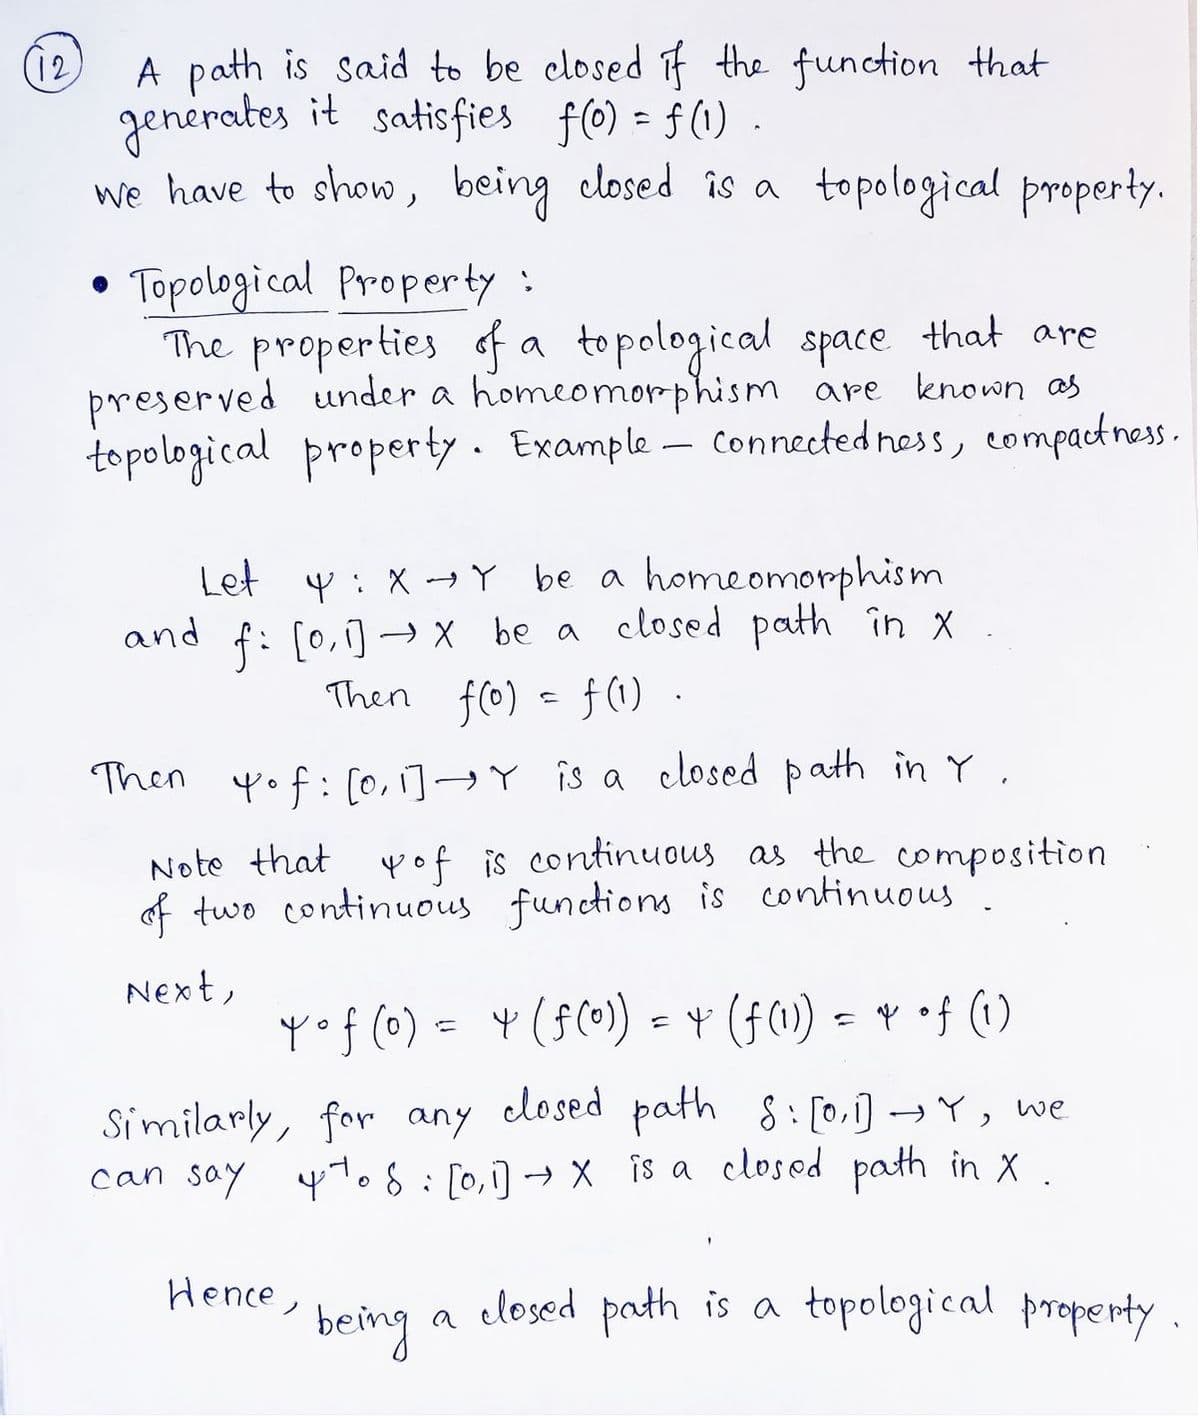 12 A path is said to be closed if the function that
generates it satisfies f(0) = f(1) .
We have to show, being closed is a topological property.
• Topological Property :
The properties of a topological space that are
preserved under a homeomorphism are known as
topological property. Example – connectedness, compactness.
Let ψ : X → Y be a homeomorphism
and f: [0,1] → X be a closed path in X .
Then f(0) = f(1) .
Then ψ∘f : [0,1] → Y is a closed path in Y .
Note that ψ∘f is continuous as the composition
of two continuous functions is continuous .
Next,
ψ∘f (0) = ψ (f(0)) = ψ (f(1)) = ψ∘f (1)
Similarly, for any closed path δ : [0,1] → Y, we
can say ψ⁻¹∘δ : [0,1] → X is a closed path in X .
Hence, being a closed path is a topological property .